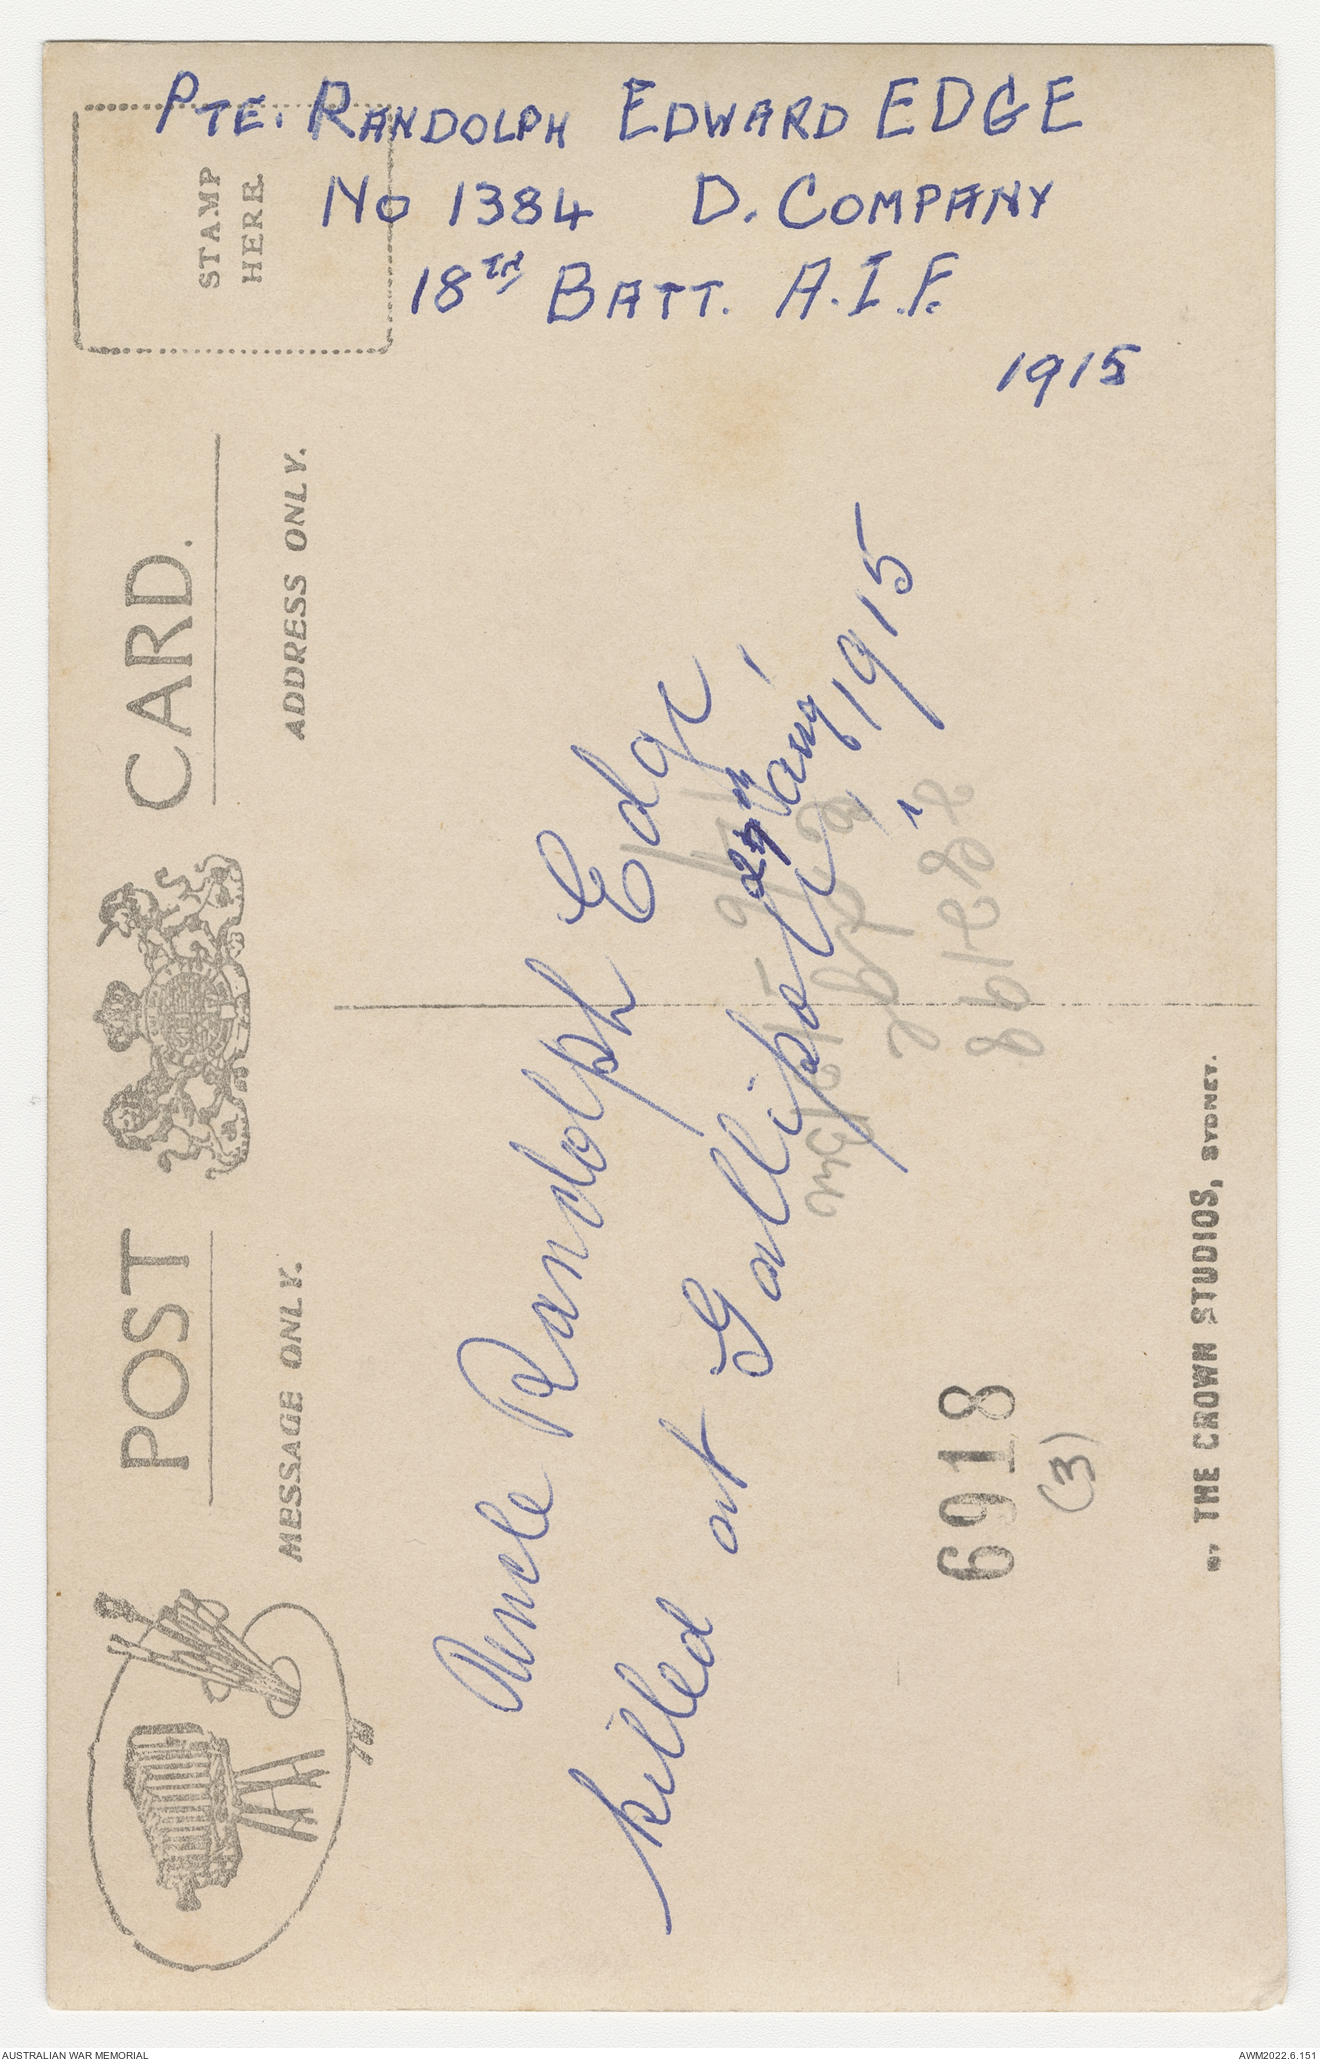 PTE. RANDOLPH EDWARD EDGE
No 1384 D. COMPANY
18TH BATT. A.I.F.
1915
STAMP
HERE
POST CARD.
MESSAGE ONLY.
ADDRESS ONLY.
Uncle Randolph Edge
killed at Gallipoli
Aug, 1915
6918
(3)
BY THE CROWN STUDIOS, SYDNEY.
AUSTRALIAN WAR MEMORIAL
AWM2022.6.151